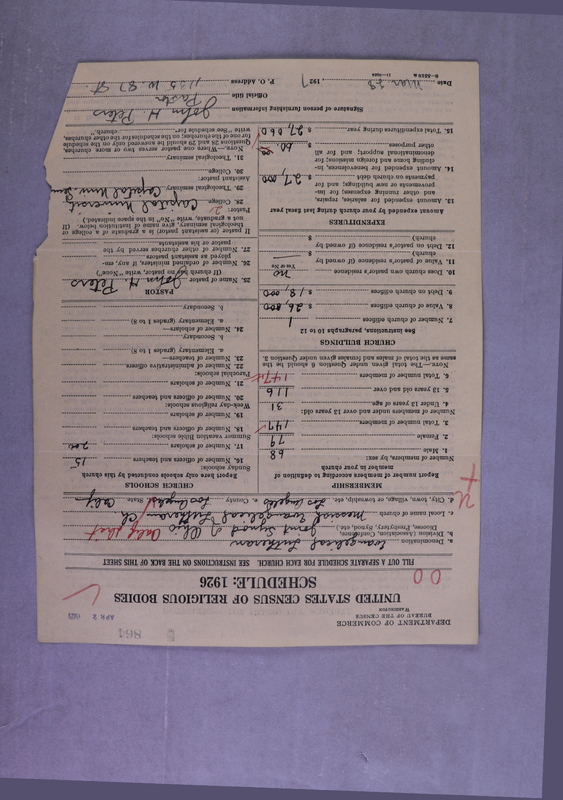 864
DEPARTMENT OF COMMERCE
BUREAU OF THE CENSUS
WASHINGTON
APR 2 1927
UNITED STATES CENSUS OF RELIGIOUS BODIES
SCHEDULE: 1926
00
FILL OUT A SEPARATE SCHEDULE FOR EACH CHURCH. SEE INSTRUCTIONS ON THE BACK OF THIS SHEET
a. Denomination Evangelical Lutheran
b. Division (Association, Conference, Diocese, Presbytery, Synod, etc.) Joint Synod of Ohio
c. Local name of church Messiah Evangelical Lutheran Ch
d. City, town, village, or township, etc. Los Angeles e. County Los Angeles State Calif
MEMBERSHIP
Report number of members according to definition of member in your church
Number of members, by sex:
1. Male 68
2. Female 79
3. Total number of members 147
Number of members under and over 13 years old:
4. Under 13 years of age 31
5. 13 years old and over 116
6. Total number of members 147
NOTE.—The total given under Question 6 should be the same as the total of males and females given under Question 3.
CHURCH BUILDINGS
See instructions, paragraphs 10 to 12
7. Number of church edifices 1
8. Value of church edifices $ 26,800
9. Debt on church edifices $ 18,000
10. Does church own pastor's residence no
Yes or No
11. Value of pastor's residence (if owned by church) $
12. Debt on pastor's residence (if owned by church) $
EXPENDITURES
Amount expended by your church during last fiscal year
13. Amount expended for salaries, repairs, and other running expenses; for improvements or new buildings; and for payments on church debt $ 27,000
14. Amount expended for benevolences, including home and foreign missions; for denominational support; and for all other purposes $ 60.
15. Total expenditures during year $ 27,060
CHURCH SCHOOLS
Report here only schools conducted by this church
Sunday schools:
16. Number of officers and teachers 15
17. Number of scholars 200
Summer vacation Bible schools:
18. Number of officers and teachers
19. Number of scholars
Week-day religious schools:
20. Number of officers and teachers
21. Number of scholars
Parochial schools:
22. Number of administrative officers
23. Number of teachers—
a. Elementary (grades 1 to 8)
b. Secondary
24. Number of scholars—
a. Elementary (grades 1 to 8)
b. Secondary
PASTOR
25. Name of pastor John H. Peters
(If church has no pastor, write "None")
26. Number of ordained ministers, if any, employed as assistant pastors
27. Number of other churches served by the pastor or his assistants
If pastor (or assistant pastor) is a graduate of a college or theological seminary, give name of institution. (If not a graduate, write "No" in the space indicated.)
Pastor:
28. College Capital University
29. Theological seminary Capital Univ. Sem
Assistant pastor:
30. College
31. Theological seminary
NOTE.—When one pastor serves two or more churches, Questions 28 and 29 should be answered only on the schedule for one of the churches; on the schedules for the other churches, write "See schedule for church."
Signature of person furnishing information John H. Peters
Official title Pastor
Date Mar. 28, 1927 P. O. Address 1135 W. 87 St